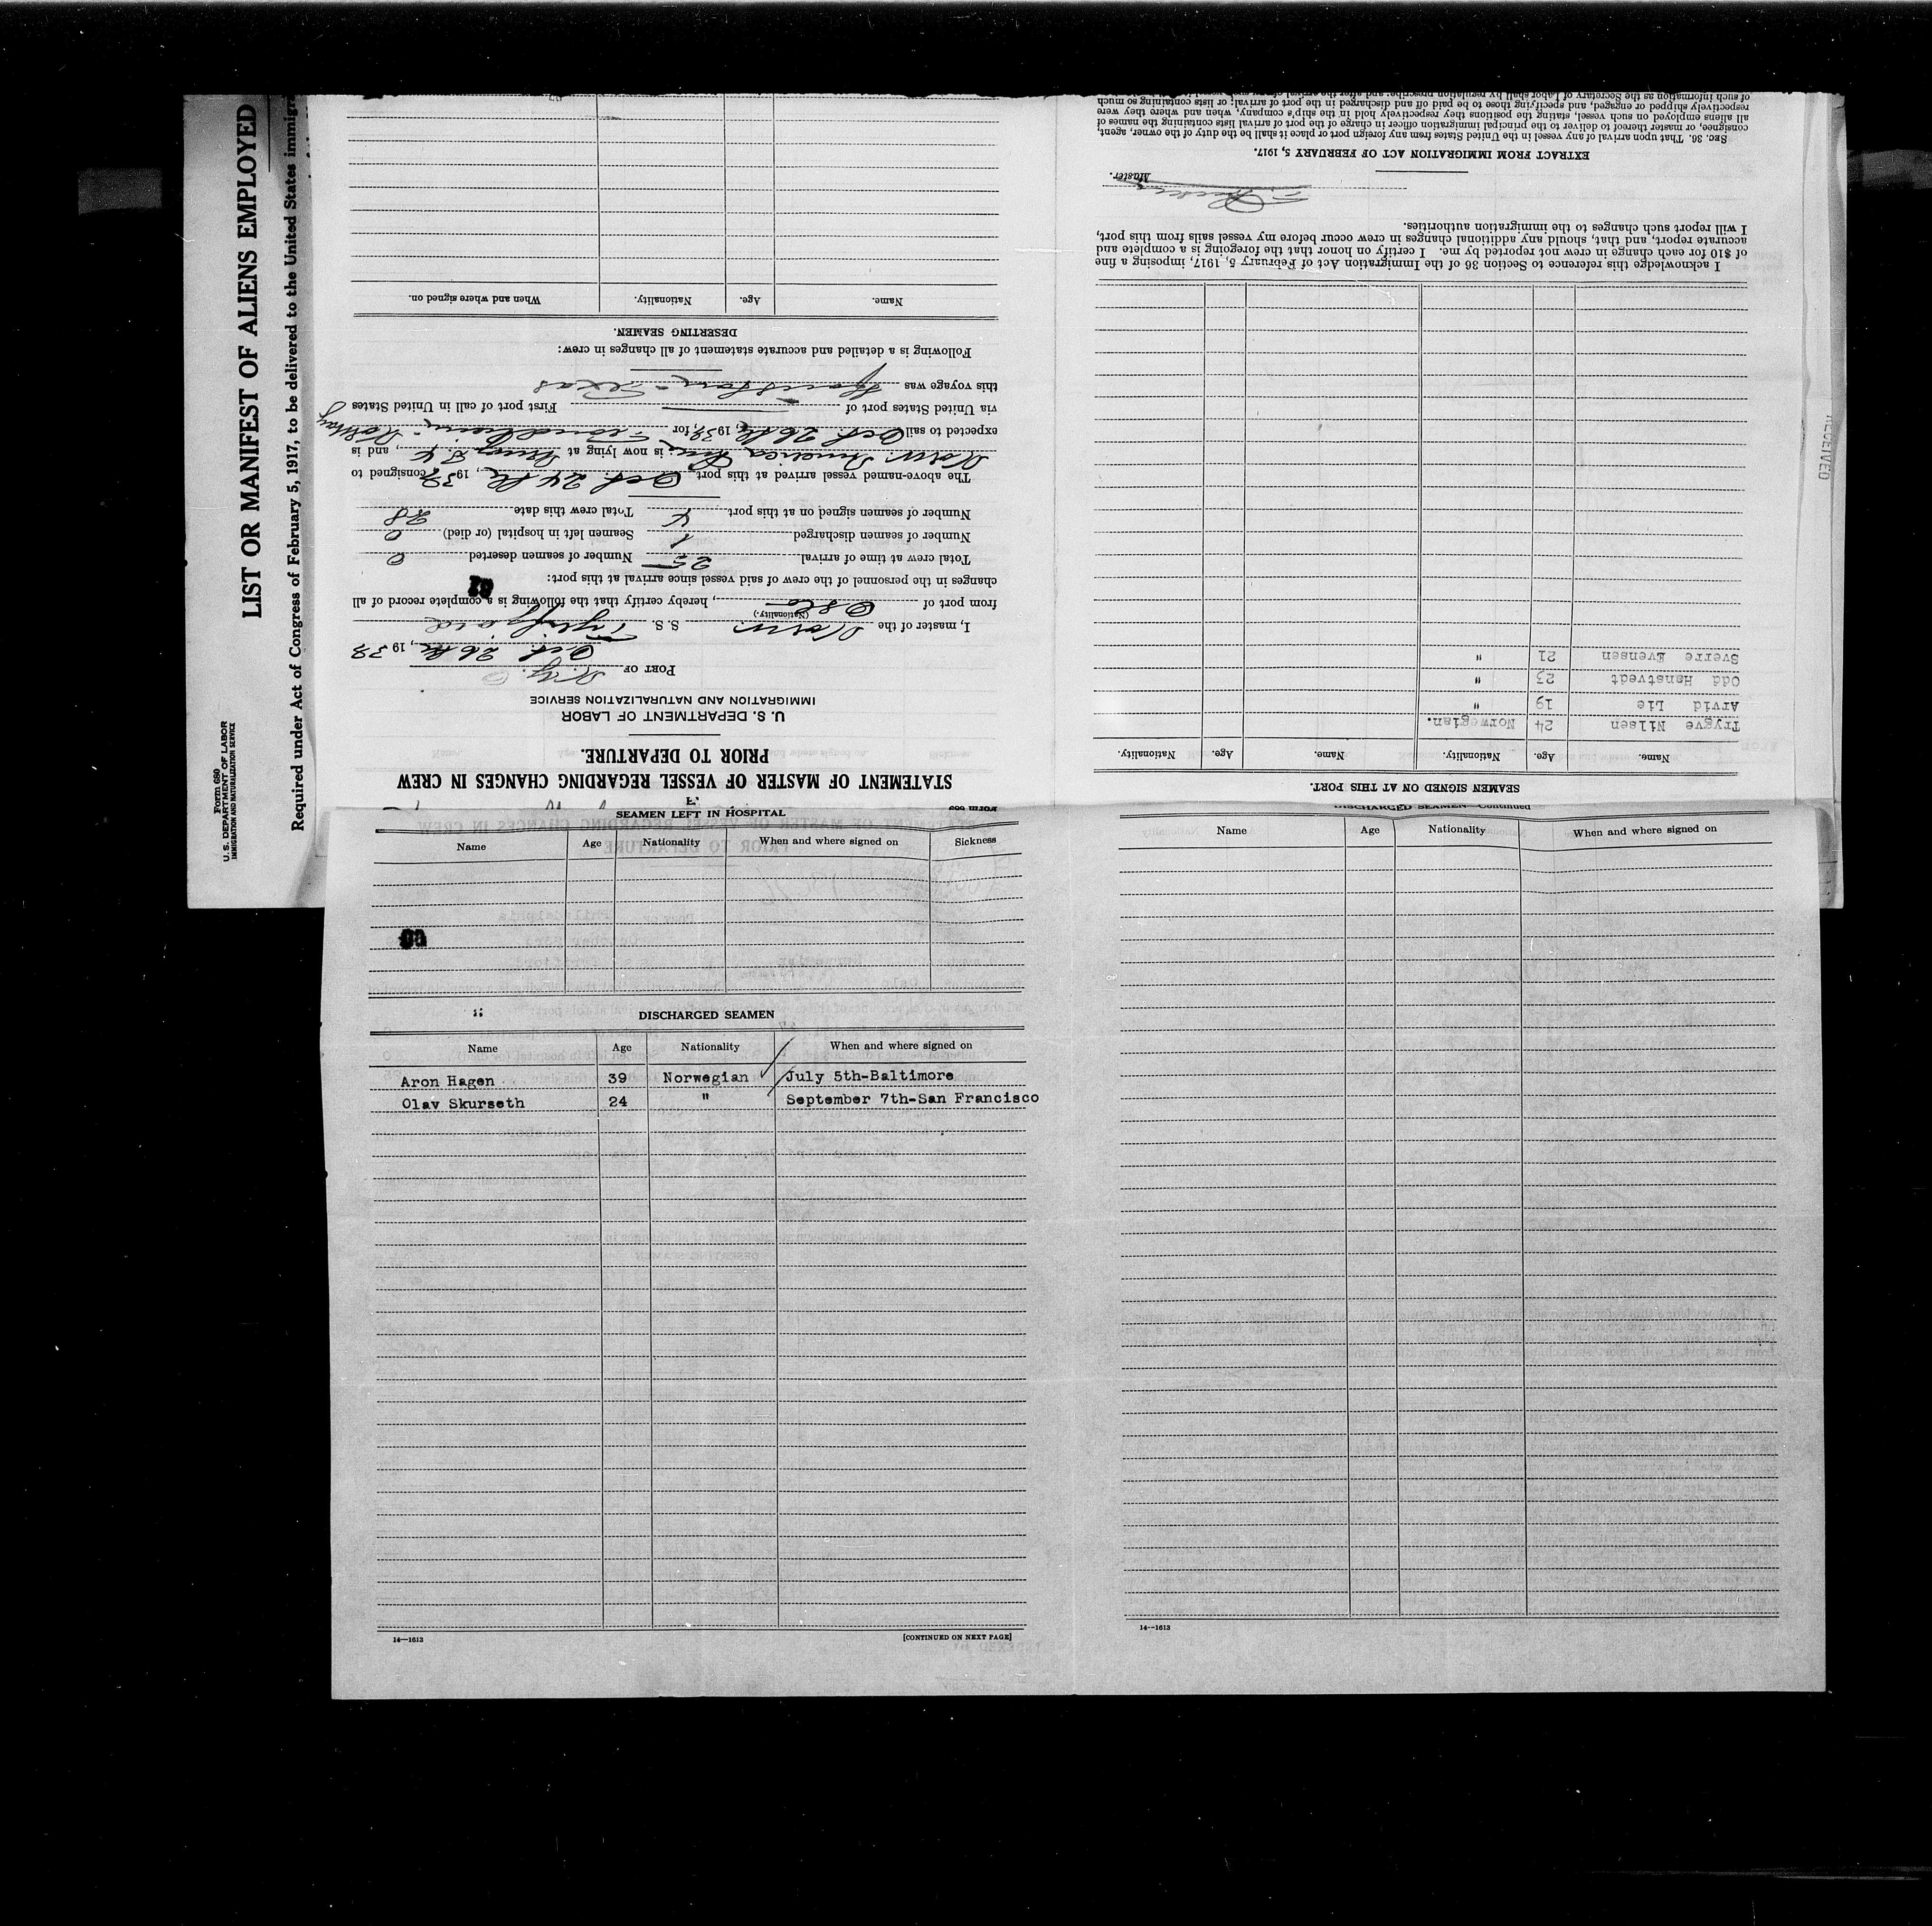 Form 680
U. S. DEPARTMENT OF LABOR
IMMIGRATION AND NATURALIZATION SERVICE
LIST OR MANIFEST OF ALIENS EMPLOYED
Required under Act of Congress of February 5, 1917, to be delivered to the United States immigra
STATEMENT OF MASTER OF VESSEL REGARDING CHANGES IN CREW
PRIOR TO DEPARTURE.
U. S. DEPARTMENT OF LABOR
IMMIGRATION AND NATURALIZATION SERVICE
PORT OF N. Y.
Oct. 26th, 1938
I, master of the Norw. S. S. Tyrifjord
(Nationality.)
from port of Oslo, hereby certify that the following is a complete record of all
changes in the personnel of the crew of said vessel since arrival at this port:
Total crew at time of arrival 25 Number of seamen deserted 0
Number of seamen discharged 1 Seamen left in hospital (or died) 0
Number of seamen signed on at this port 4 Total crew this date 28
The above-named vessel arrived at this port Oct. 24th, 1938, consigned to
Norw. America Line; is now lying at, and is
expected to sail Oct. 26th, 1938, for Trondheim - Norway
via United States port of First port of call in United States
this voyage was Houston - Texas
Following is a detailed and accurate statement of all changes in crew:
DESERTING SEAMEN.
Name. Age. Nationality. When and where signed on.
SEAMEN SIGNED ON AT THIS PORT.
Name. Age. Nationality. Name. Age. Nationality.
Trygve Nilsen 24 Norwegian.
Arvid Lie 19 "
Odd Hanstvedt 23 "
Sverre Evensen 21 "
I acknowledge this reference to Section 36 of the Immigration Act of February 5, 1917, imposing a fine
of $10 for each change in crew not reported by me. I certify on honor that the foregoing is a complete and
accurate report, and that, should any additional changes in crew occur before my vessel sails from this port,
I will report such changes to the immigration authorities.
Master.
EXTRACT FROM IMMIGRATION ACT OF FEBRUARY 5, 1917.
SEC. 36. That upon arrival of any vessel in the United States from any foreign port or place it shall be the duty of the owner, agent,
consignee, or master thereof to deliver to the principal immigration officer in charge of the port of arrival lists containing the names of
all aliens employed on such vessel, stating the positions they respectively hold in the ship's company, when and where they were
respectively shipped or engaged, and specifying those to be paid off and discharged in the port of arrival; or lists containing so much
of such information as the Secretary of Labor shall by regulation prescribe; and after the arrival of any such vessel
RECEIVED
SEAMEN LEFT IN HOSPITAL
Name Age Nationality When and where signed on Sickness
DISCHARGED SEAMEN
Name Age Nationality When and where signed on
Aron Hagen 39 Norwegian July 5th-Baltimore
Olav Skurseth 24 " September 7th-San Francisco
14—1613
[CONTINUED ON NEXT PAGE]
DISCHARGED SEAMEN—Continued
Name Age Nationality When and where signed on
14—1613